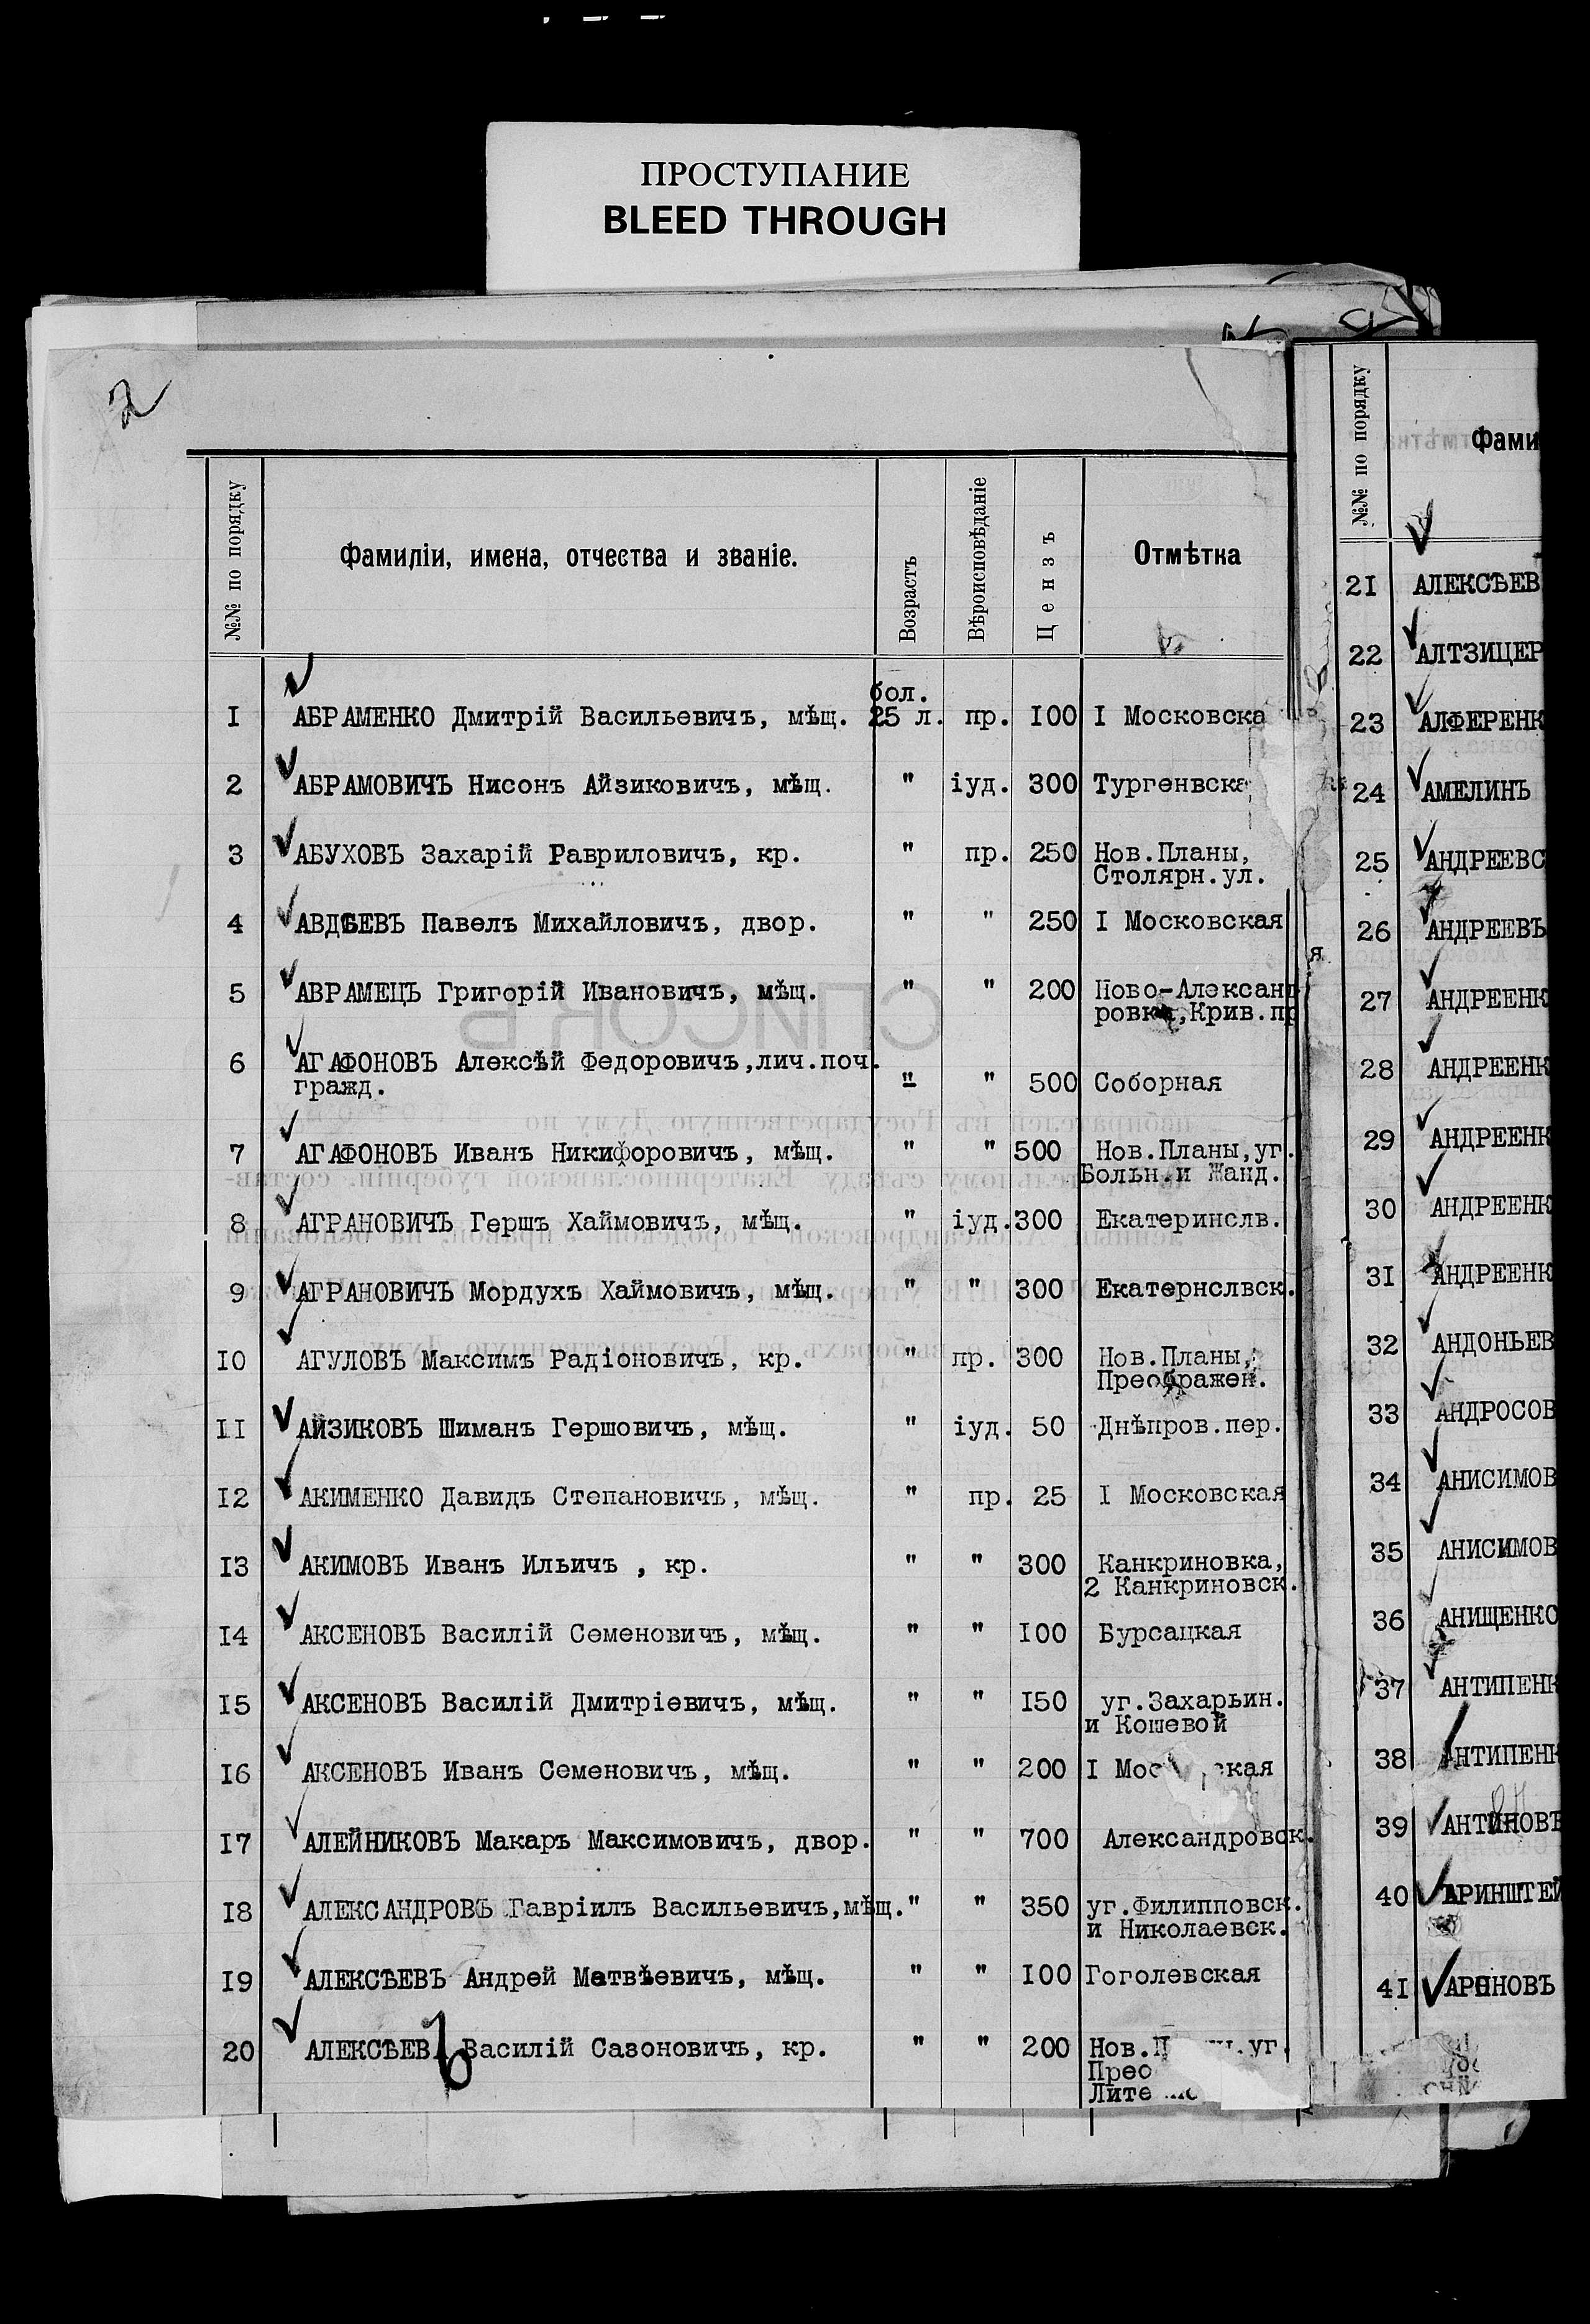 ПРОСТУПАНИЕ
BLEED THROUGH
2
№№ по порядку Фамиліи, имена, отчества и званіе. Возрастъ Вѣроисповѣданіе Цензъ Отмѣтка
бол.
I АБРАМЕНКО Дмитрій Васильевичъ, мѣщ. 25 л. пр. I00 I Московска
2 АБРАМОВИЧЪ Нисонъ Айзиковичъ, мѣщ. " іуд. 300 Тургенвска
3 АБУХОВЪ Захарій Равриловичъ, кр. " пр. 250 Нов.Планы,
Столярн.ул.
4 АВДѢЕВЪ Павелъ Михайловичъ, двор. " " 250 I Московская
5 АВРАМЕЦЪ Григорій Ивановичъ, мѣщ. " " 200 Ново-Александ
ровка,Крив.пр
6 АГАФОНОВЪ Алексѣй Федоровичъ,лич.поч.
гражд. " " 500 Соборная
7 АГАФОНОВЪ Иванъ Никифоровичъ, мѣщ. " " 500 Нов.Планы,уг.
Больн.и Жанд.
8 АГРАНОВИЧЪ Гершъ Хаймовичъ, мѣщ. " іуд. 300 Екатеринслв.
9 АГРАНОВИЧЪ Мордухъ Хаймовичъ, мѣщ. " " 300 Екатернслвск.
I0 АГУЛОВЪ Максимъ Радіоновичъ, кр. " пр. 300 Нов.Планы,
Преображен.
II АЙЗИКОВЪ Шиманъ Гершовичъ, мѣщ. " іуд. 50 Днѣпров.пер.
I2 АКИМЕНКО Давидъ Степановичъ, мѣщ. " пр. 25 I Московская
I3 АКИМОВЪ Иванъ Ильичъ , кр. " " 300 Канкриновка,
2 Канкриновск.
I4 АКСЕНОВЪ Василій Семеновичъ, мѣщ. " " I00 Бурсацкая
I5 АКСЕНОВЪ Василій Дмитріевичъ, мѣщ. " " I50 уг.Захарьин.
и Кошевой
I6 АКСЕНОВЪ Иванъ Семеновичъ, мѣщ. " " 200 I Мос ская
I7 АЛЕЙНИКОВЪ Макаръ Максимовичъ, двор. " " 700 Александровск.
I8 АЛЕКСАНДРОВЪ Гавріилъ Васильевичъ,мѣщ. " " 350 уг.Филипповск.
и Николаевск.
I9 АЛЕКСѢЕВЪ Андрей Матвѣевичъ, мѣщ. " " I00 Гоголевская
20 АЛЕКСѢЕВЪ Василій Сазоновичъ, кр. " " 200 Нов. уг.
Прео
Лите
№№ по порядку Фами
2I АЛЕКСѢЕВ
22 АЛТЗИЦЕР
23 АЛФЕРЕНК
24 АМЕЛИНЪ
25 АНДРЕЕВС
26 АНДРЕЕВЪ
27 АНДРЕЕНК
28 АНДРЕЕНК
29 АНДРЕЕНК
30 АНДРЕЕНК
3I АНДРЕЕНК
32 АНДОНЬЕВ
33 АНДРОСОВ
34 АНИСИМОВ
35 АНИСИМОВ
36 АНИЩЕНКО
37 АНТИПЕНК
38 АНТИПЕНК
39 АНТИНОВЪ
40 АРИНШТЕЙ
4I АРОНОВЪ